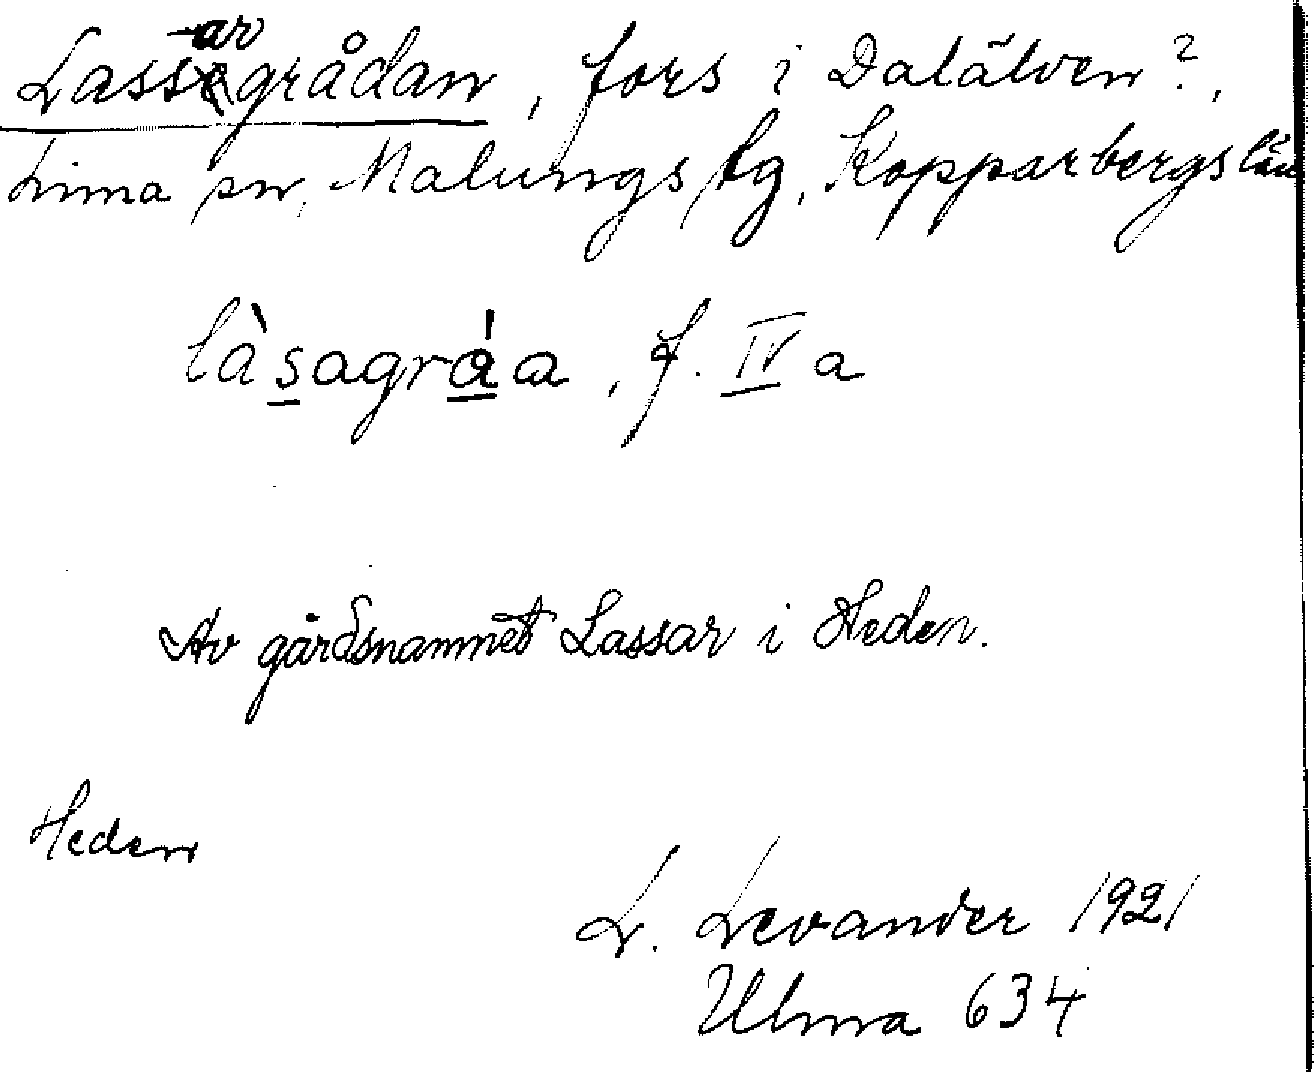 Lassargrådan, fors i Dalälven?,
Lima sn, Malungs tg, Kopparbergs län
làsagráa, f. IV a
Av gårdsnamnet Lassar i Heden.
Heden
L. Levander 1921
Ulma 634